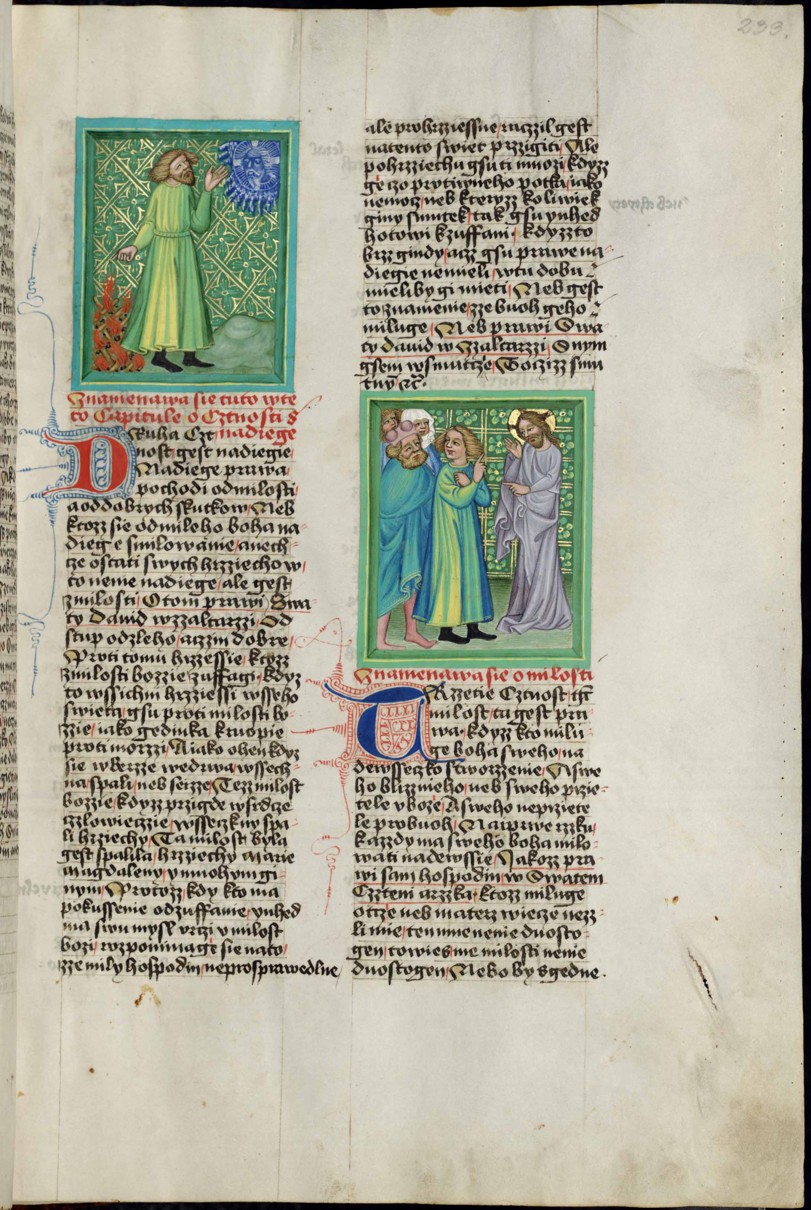 239.
Znamenawa sie tuto w te
to Capitule o Cztnosti
Druha Czt nadiege
nost gest nadiegie
Nadiege prawa
pochodi od milosti
a od dobrych skutkow / Neb
ktozz sie od mileho boha na
diege smilowanie / a nech
cze ostati swych hrziechow
to nenie nadiege / ale gest
zmilosti / O tom prawi Swa
ty dawid w zzaltarzi / Od
stup od zleho / a czin dobre /
Proti tomu hrzessie / ktozz
zmilosti bozzie zuffagi / kdyz
to wssichni hrziessi wsseho
swieta / gsu proti milosti bo
zzie / iako gedinka kruopie
proti morzi / A iako ohen kdyz
sie wberzze wedrwa / wssech
na spali / neb seizze / Tezz milost
bozzie / kdyzz przigde w srdcze
czlowieczie / wsseczkny spa
li hrziechy / Ta milost byla
gest spalila / hrziechy Marie
magdaleny / y mnohym gi
nym / Protozz / kdy kto ma
pokussenie od zuffanie / ynhed
ma swu mysl wrzi w milost
bozi / rozpominage sie na to /
zze mily hospodin / ne pro sprawedlne
ale pro hrziessne / raczil gest
na tento swiet przigiti / Ale
po hrziechu gsu ti mnozi / kdyzz
ge czo protiwneho potka / iako
nemocz / neb kteryzz koliwiek
giny smutek / tak gsu ynhed
hotowi k zuffani / kdyzz to
brzz gindy / aczz gsu prawe na
diegie nemieli / w tu dobu
mieli by gi mieti / Neb gest
to znamenie / zze buoh geho
miluge / Neb prawi Swa
ty dawid w Zzaltarzi / S nym
gsem w smutcze / Toczizz smu
tny etc.
Znamenawa sie o milosti
Trzetie Cztnost
milost / ta gest pra
wa / kdyzz kto milu
ge boha sweho / na
dewsseczko stworzenie / A swe
ho blizznieho / neb sweho przie
tele w boze / A sweho neprziete
le pro buoh / Naiprwe rzku
kazzdy ma sweho boha milo
wati nadewssie / Jakozz pra
wi sam hospodin / w Swatem
Cztteni a rzka / ktozz miluge
otcze neb materz wiecze nezz
li mie / ten mne nenie duosto
gen / to wiesme milosti nenie
duostogen / Nebo by s gedne